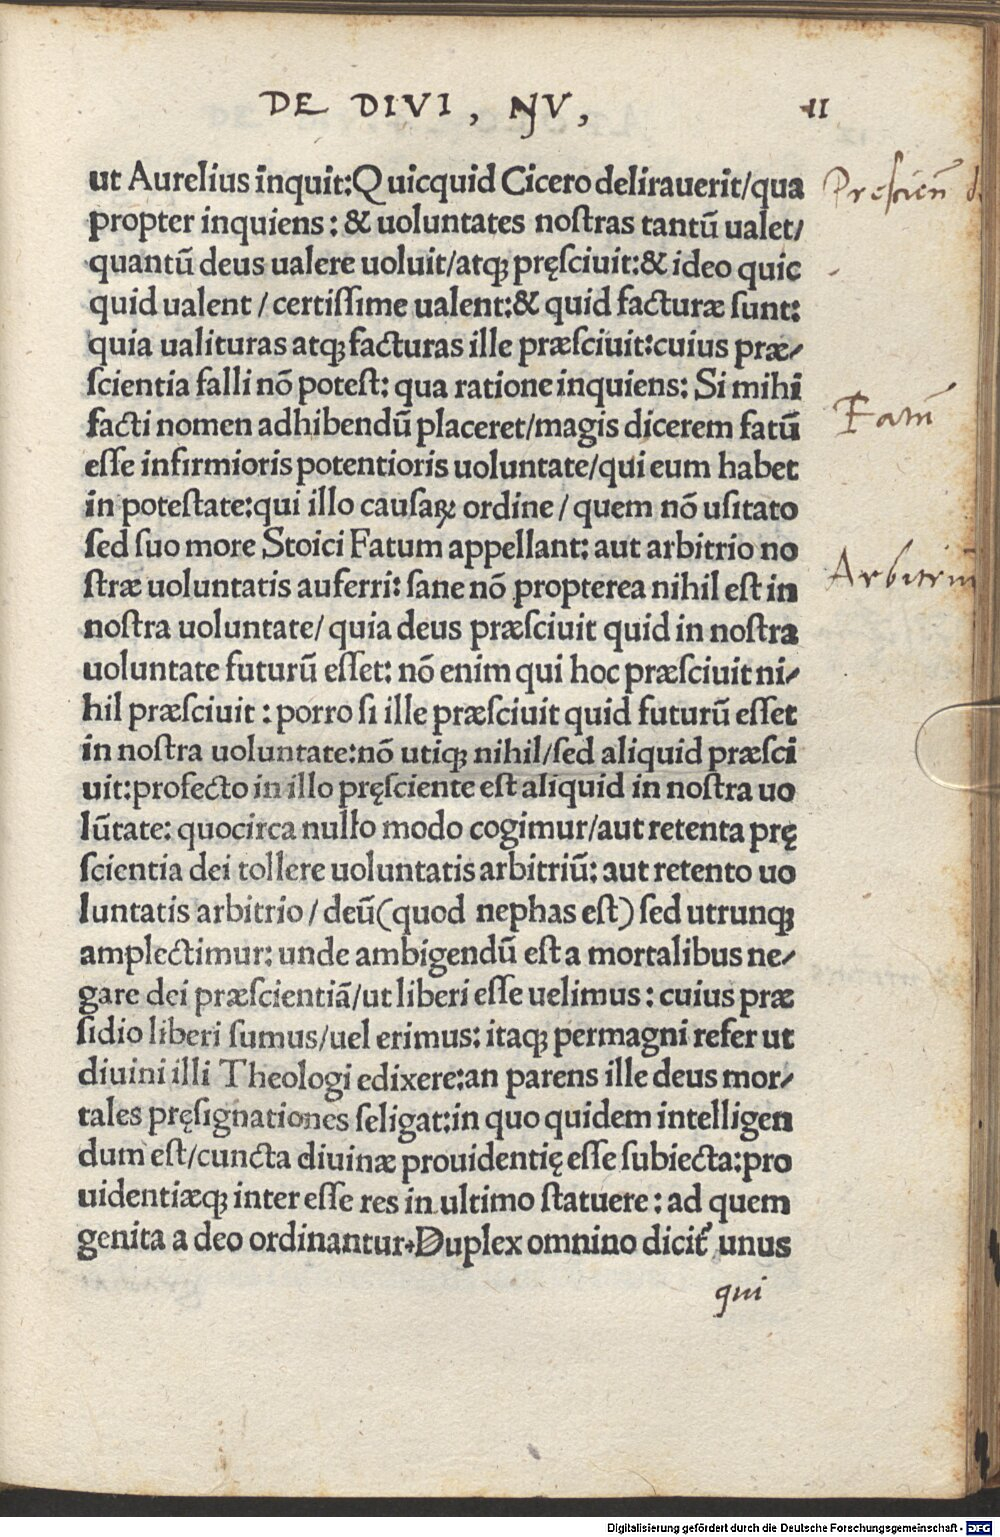 DE DIVI, NV, 11
ut Aurelius inquit:Quicquid Cicero delirauerit/qua
propter inquiens: & uoluntates nostras tantū ualet/
quantū deus ualere uoluit/atqꝫ pręsciuit:& ideo quic
quid ualent / certissime ualent:& quid facturæ sunt:
quia ualituras atqꝫ facturas ille præsciuit:cuius præ/
scientia falli nō potest: qua ratione inquiens: Si mihi
facti nomen adhibendū placeret/magis dicerem fatū
esse infirmioris potentioris uoluntate/qui eum habet
in potestate:qui illo causaꝝ ordine / quem nō usitato
sed suo more Stoici Fatum appellant: aut arbitrio no
stræ uoluntatis auferri: sane nō propterea nihil est in
nostra uoluntate/ quia deus præsciuit quid in nostra
uoluntate futurū esset: nō enim qui hoc præsciuit ni/
hil præsciuit : porro si ille præsciuit quid futurū esset
in nostra uoluntate:nō utiqꝫ nihil/sed aliquid præsci
uit:profecto in illo pręsciente est aliquid in nostra uo
lūtate: quocirca nullo modo cogimur/aut retenta prę
scientia dei tollere uoluntatis arbitriū: aut retento uo
luntatis arbitrio / deū(quod nephas est) sed utrunqꝫ
amplectimur: unde ambigendū est a mortalibus ne/
gare dei præscientiā/ut liberi esse uelimus : cuius præ
sidio liberi sumus/uel erimus: itaqꝫ permagni refer ut
diuini illi Theologi edixere:an parens ille deus mor/
tales pręsignationes seligat:in quo quidem intelligen
dum est/cuncta diuinæ prouidentię esse subiecta:pro
uidentiæqꝫ inter esse res in ultimo statuere : ad quem
genita a deo ordinantur.Duplex omnino dicit᷑ unus
qui
Prescien̄
Fatū
Arbitriū
Digitalisierung gefördert durch die Deutsche Forschungsgemeinschaft - DFG